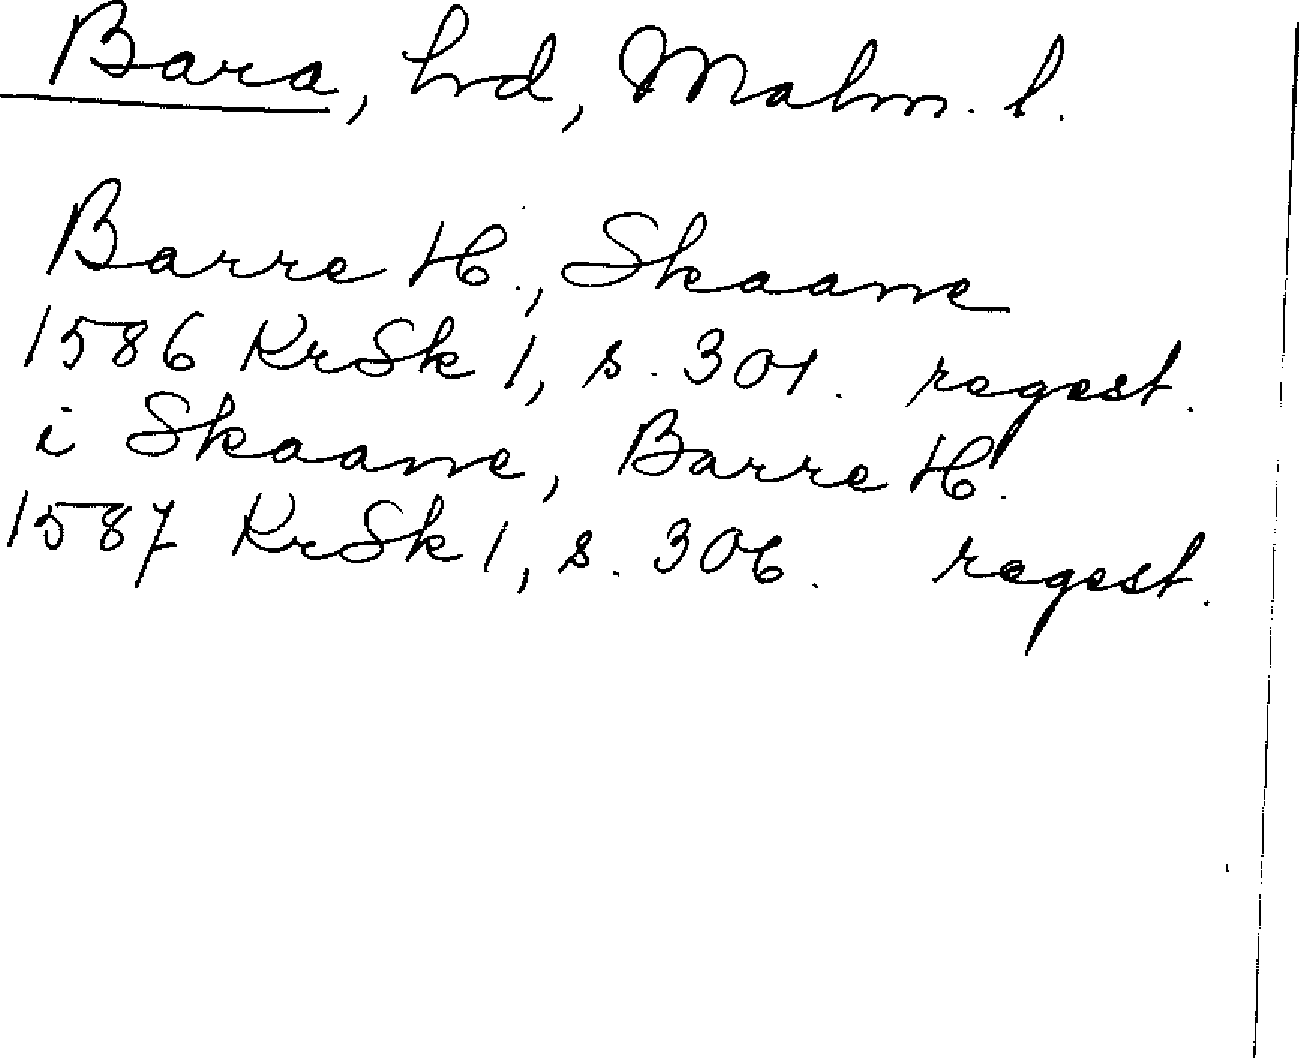 Bara, hrd, Malm. l.
Barre H., Skaane
1586 KrSk 1, s. 301. regest.
i Skaane, Barre H.
1587 KrSk 1, s. 306. regest.